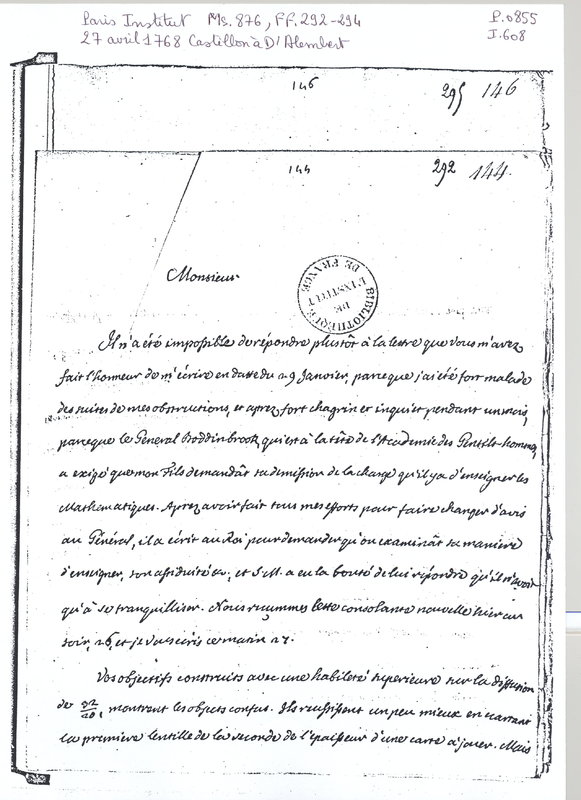 Paris Institut Ms. 876, FF. 292-294 P.0855
27 avril 1768 Castillon à D'Alembert I.608
146 295 146
144 292 144.
Monsieur
BIBLIOTHEQUE DE L'INSTITUT DE FRANCE
Il n'a été impossible de répondre plustôt à la lettre que vous m'avez
fait l'honneur de m'écrire en datte du 29 Janvier, parce que j'ai été fort malade
des suites de mes obstructions, et aprez fort chagrin et inquiet pendant un mois,
parceque le Général Boddinbrook qui est à la tête de l'Académie des Gentils-hommes
a exigé que mon Fils demandât sa demission de la charge qu'il y a d'enseigner les
Mathematiques. Aprez avoir fait tous mes efforts pour faire changer d'avis
au Général, il a écrit au Roi pour demander qu'on examinât sa maniere
d'enseigner, son assiduité &c, et S. M. a eu la bonté de lui répondre qu'il n'avoit
qu'à se tranquilliser. Nous reçumes cette consolante nouvelle hier au
soir, 26, et je vous écris ce matin 27.
Vos objectifs construits avec une habileté superieure sur la diffusion
de 32/20, montrent les objets confus. Ils reussissent un peu mieux en ecartant
la premiere lentille de la seconde de l'épaisseur d'une carte à jouer. Mais